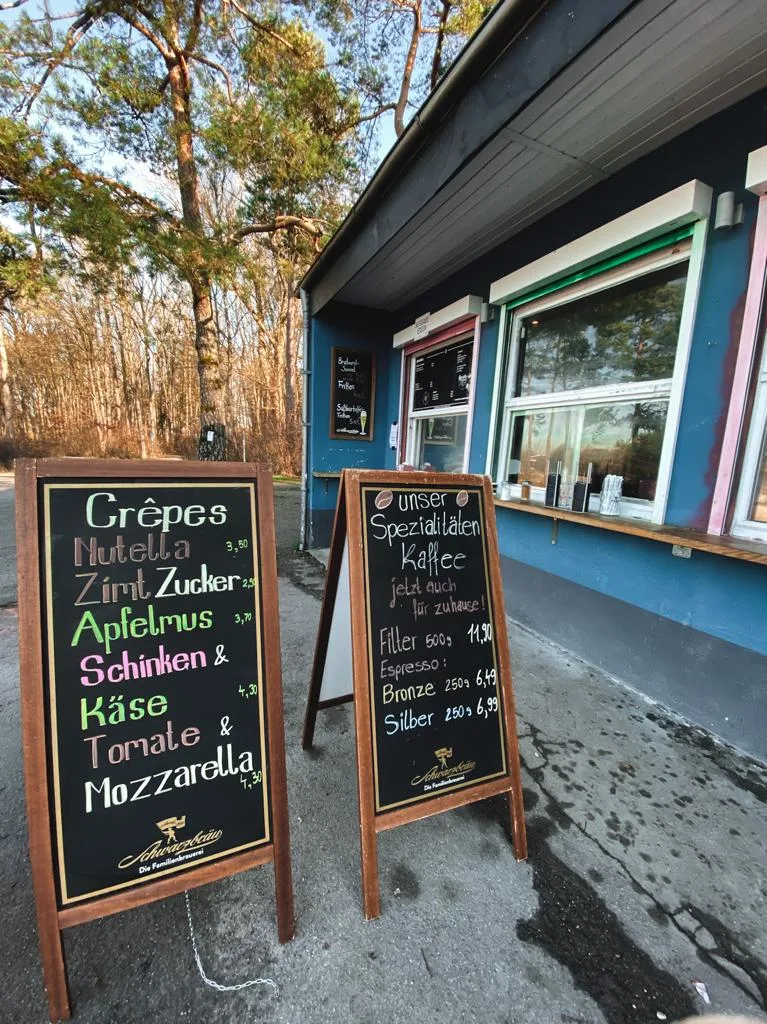 Crêpes
Nutella 3,50
Zimt Zucker 2,50
Apfelmus 3,70
Schinken &
Käse 4,30
Tomate &
Mozzarella 4,30
Schwarzbräu
Die Familienbrauerei
unser
Spezialitäten
Kaffee
jetzt auch
für zuhause!
Filter 500g 11,90
Espresso:
Bronze 250g 6,49
Silber 250g 6,99
Schwarzbräu
Die Familienbrauerei
Fritten
Süßkartoffel
Fritten